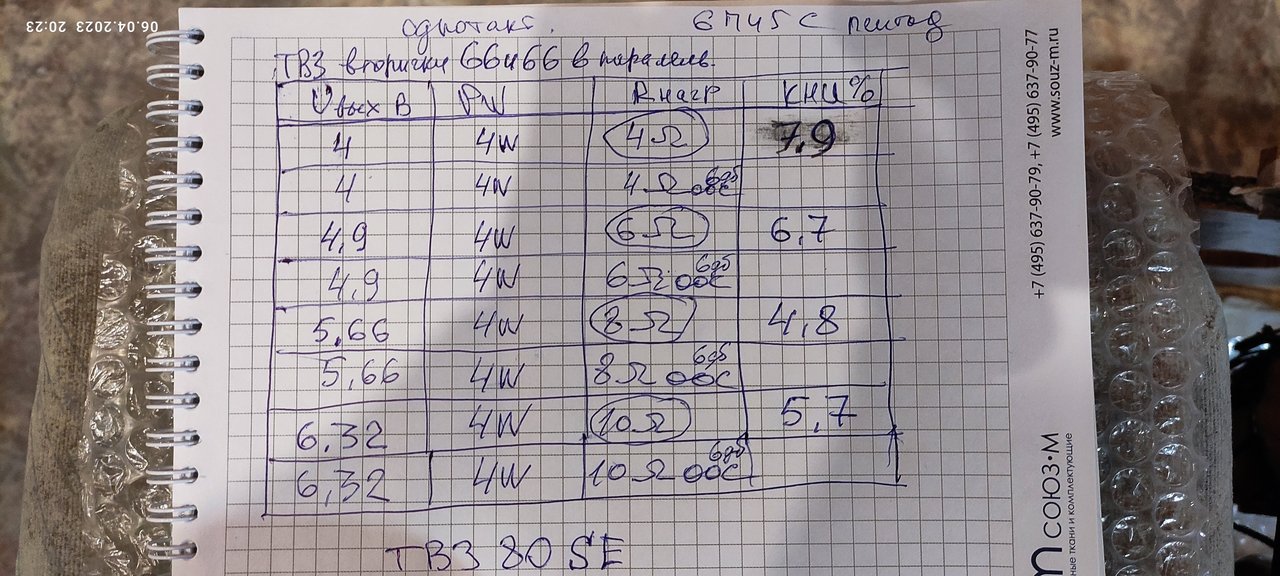 06.04.2023 20:23
однотакт. 6П45С пентод
ТВЗ вторички 66и66 в паралель.
Uвых В PW Rнагр КНИ%
4 4W 4Ω 7,9
4 4W 4Ω ООС 6дб
4,9 4W 6Ω 6,7
4,9 4W 6Ω ООС 6дб
5,66 4W 8Ω 4,8
5,66 4W 8Ω ООС 6дб
6,32 4W 10Ω 5,7
6,32 4W 10Ω ООС 6дб
ТВЗ 80 SE
+7 (495) 637-90-79, +7 (495) 637-90-77
www.souz-m.ru
СОЮЗ·М
ные ткани и комплектующие